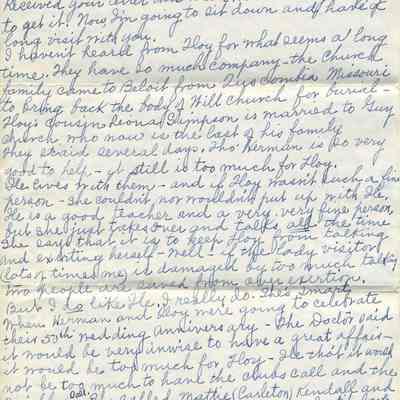 Received your letter and
to get it. Now I'm going to sit down and have a
long visit with you.
I haven't heard from Floy for what seems a long
time. They have so much company - the Church
family came to Beloit from Missouri
to bring back the body of Will Church for burial -
Floy's cousin Leona Simpson is married to Guy
Church who now is the last of his family
They staid several days. Tho' Herman is so very
good to help - it still is too much for Floy.
Ile lives with them - and if Floy wasn't such a fine
person - she couldn't, nor wouldn't put up with Ile.
Ile is a good teacher and a very, very fine person
but she just takes over and talks all the time
She says that it is to keep Floy from talking
and exerting herself - Well! if the lady visitor
(lots of times me) is damaged by too much talking
two people are saved from any exertion.
But I do like Ile, I really do. She's smart.
When Herman and Floy were going to celebrate
their 50th Wedding Anniversary - the Doctor said
it would be very unwise to have a great affair -
it would be too much for Floy - Ile that it would
not be too much to have the couples call and the
called Mattie (Carleton) Kendall and